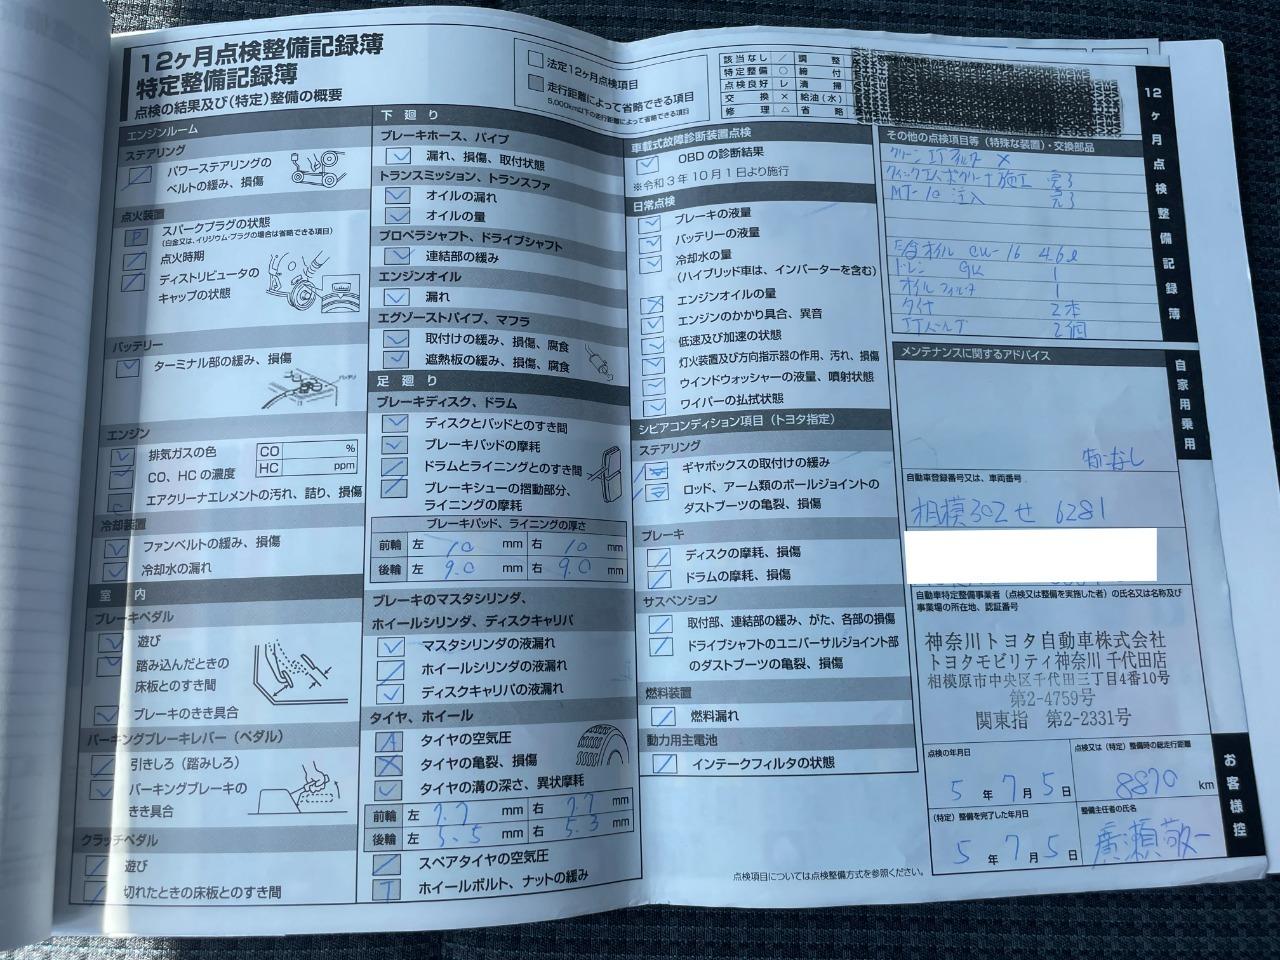 12ヶ月点検整備記録簿
特定整備記録簿
点検の結果及び(特定)整備の概要
法定12ヶ月点検項目
走行距離によって省略できる項目
5,000km以下の走行距離によって省略できる項目
該当なし ／ 調整
特定整備 ○ 締付
点検良好 レ 清掃
交換 × 給油(水)
修理 △ 省略
エンジンルーム
ステアリング
パワーステアリングの
ベルトの緩み、損傷
点火装置
P スパークプラグの状態
(白金又は、イリジウム・プラグの場合は省略できる項目)
点火時期
ディストリビュータの
キャップの状態
バッテリー
ターミナル部の緩み、損傷
エンジン
排気ガスの色
CO、HCの濃度
CO %
HC ppm
エアクリーナエレメントの汚れ、詰り、損傷
冷却装置
ファンベルトの緩み、損傷
冷却水の漏れ
室内
ブレーキペダル
遊び
踏み込んだときの
床板とのすき間
ブレーキのきき具合
パーキングブレーキレバー(ペダル)
引きしろ(踏みしろ)
パーキングブレーキの
きき具合
クラッチペダル
遊び
切れたときの床板とのすき間
下廻り
ブレーキホース、パイプ
漏れ、損傷、取付状態
トランスミッション、トランスファ
オイルの漏れ
オイルの量
プロペラシャフト、ドライブシャフト
連結部の緩み
エンジンオイル
漏れ
エグゾーストパイプ、マフラ
取付けの緩み、損傷、腐食
遮熱板の緩み、損傷、腐食
足廻り
ブレーキディスク、ドラム
ディスクとパッドとのすき間
ブレーキパッドの摩耗
ドラムとライニングとのすき間
ブレーキシューの摺動部分、
ライニングの摩耗
ブレーキパッド、ライニングの厚さ
前輪 左 10 mm 右 10 mm
後輪 左 9.0 mm 右 9.0 mm
ブレーキのマスタシリンダ、
ホイールシリンダ、ディスクキャリパ
マスタシリンダの液漏れ
ホイールシリンダの液漏れ
ディスクキャリパの液漏れ
タイヤ、ホイール
A タイヤの空気圧
× タイヤの亀裂、損傷
タイヤの溝の深さ、異状摩耗
前輪 左 7.7 mm 右 7.7 mm
後輪 左 5.5 mm 右 5.3 mm
スペアタイヤの空気圧
T ホイールボルト、ナットの緩み
車載式故障診断装置点検
OBDの診断結果
※令和3年10月1日より施行
日常点検
ブレーキの液量
バッテリーの液量
冷却水の量
(ハイブリッド車は、インバーターを含む)
× エンジンオイルの量
エンジンのかかり具合、異音
低速及び加速の状態
灯火装置及び方向指示器の作用、汚れ、損傷
ウインドウォッシャーの液量、噴射状態
ワイパーの払拭状態
シビアコンディション項目(トヨタ指定)
ステアリング
ギヤボックスの取付けの緩み
ロッド、アーム類のボールジョイントの
ダストブーツの亀裂、損傷
ブレーキ
ディスクの摩耗、損傷
ドラムの摩耗、損傷
サスペンション
取付部、連結部の緩み、がた、各部の損傷
ドライブシャフトのユニバーサルジョイント部
のダストブーツの亀裂、損傷
燃料装置
燃料漏れ
動力用主電池
インテークフィルタの状態
点検項目については点検整備方式を参照ください。
その他の点検項目等(特殊な装置)・交換部品
施工 完了
MT-10 注入 完了
オイル 4.6ℓ
ドレン GK 1
オイルフィルタ 1
タイヤ 2本
エアバルブ 2個
メンテナンスに関するアドバイス
特になし
自動車登録番号又は、車両番号
相模302せ 6281
自動車特定整備事業者(点検又は整備を実施した者)の氏名又は名称及び
事業場の所在地、認証番号
神奈川トヨタ自動車株式会社
トヨタモビリティ神奈川 千代田店
相模原市中央区千代田三丁目4番10号
第2-4759号
関東指 第2-2331号
点検の年月日
5年7月5日
点検又は(特定)整備時の総走行距離
8870 km
(特定)整備を完了した年月日
5年7月5日
整備主任者の氏名
廣瀬敬一
12ヶ月点検整備記録簿
自家用乗用
お客様控